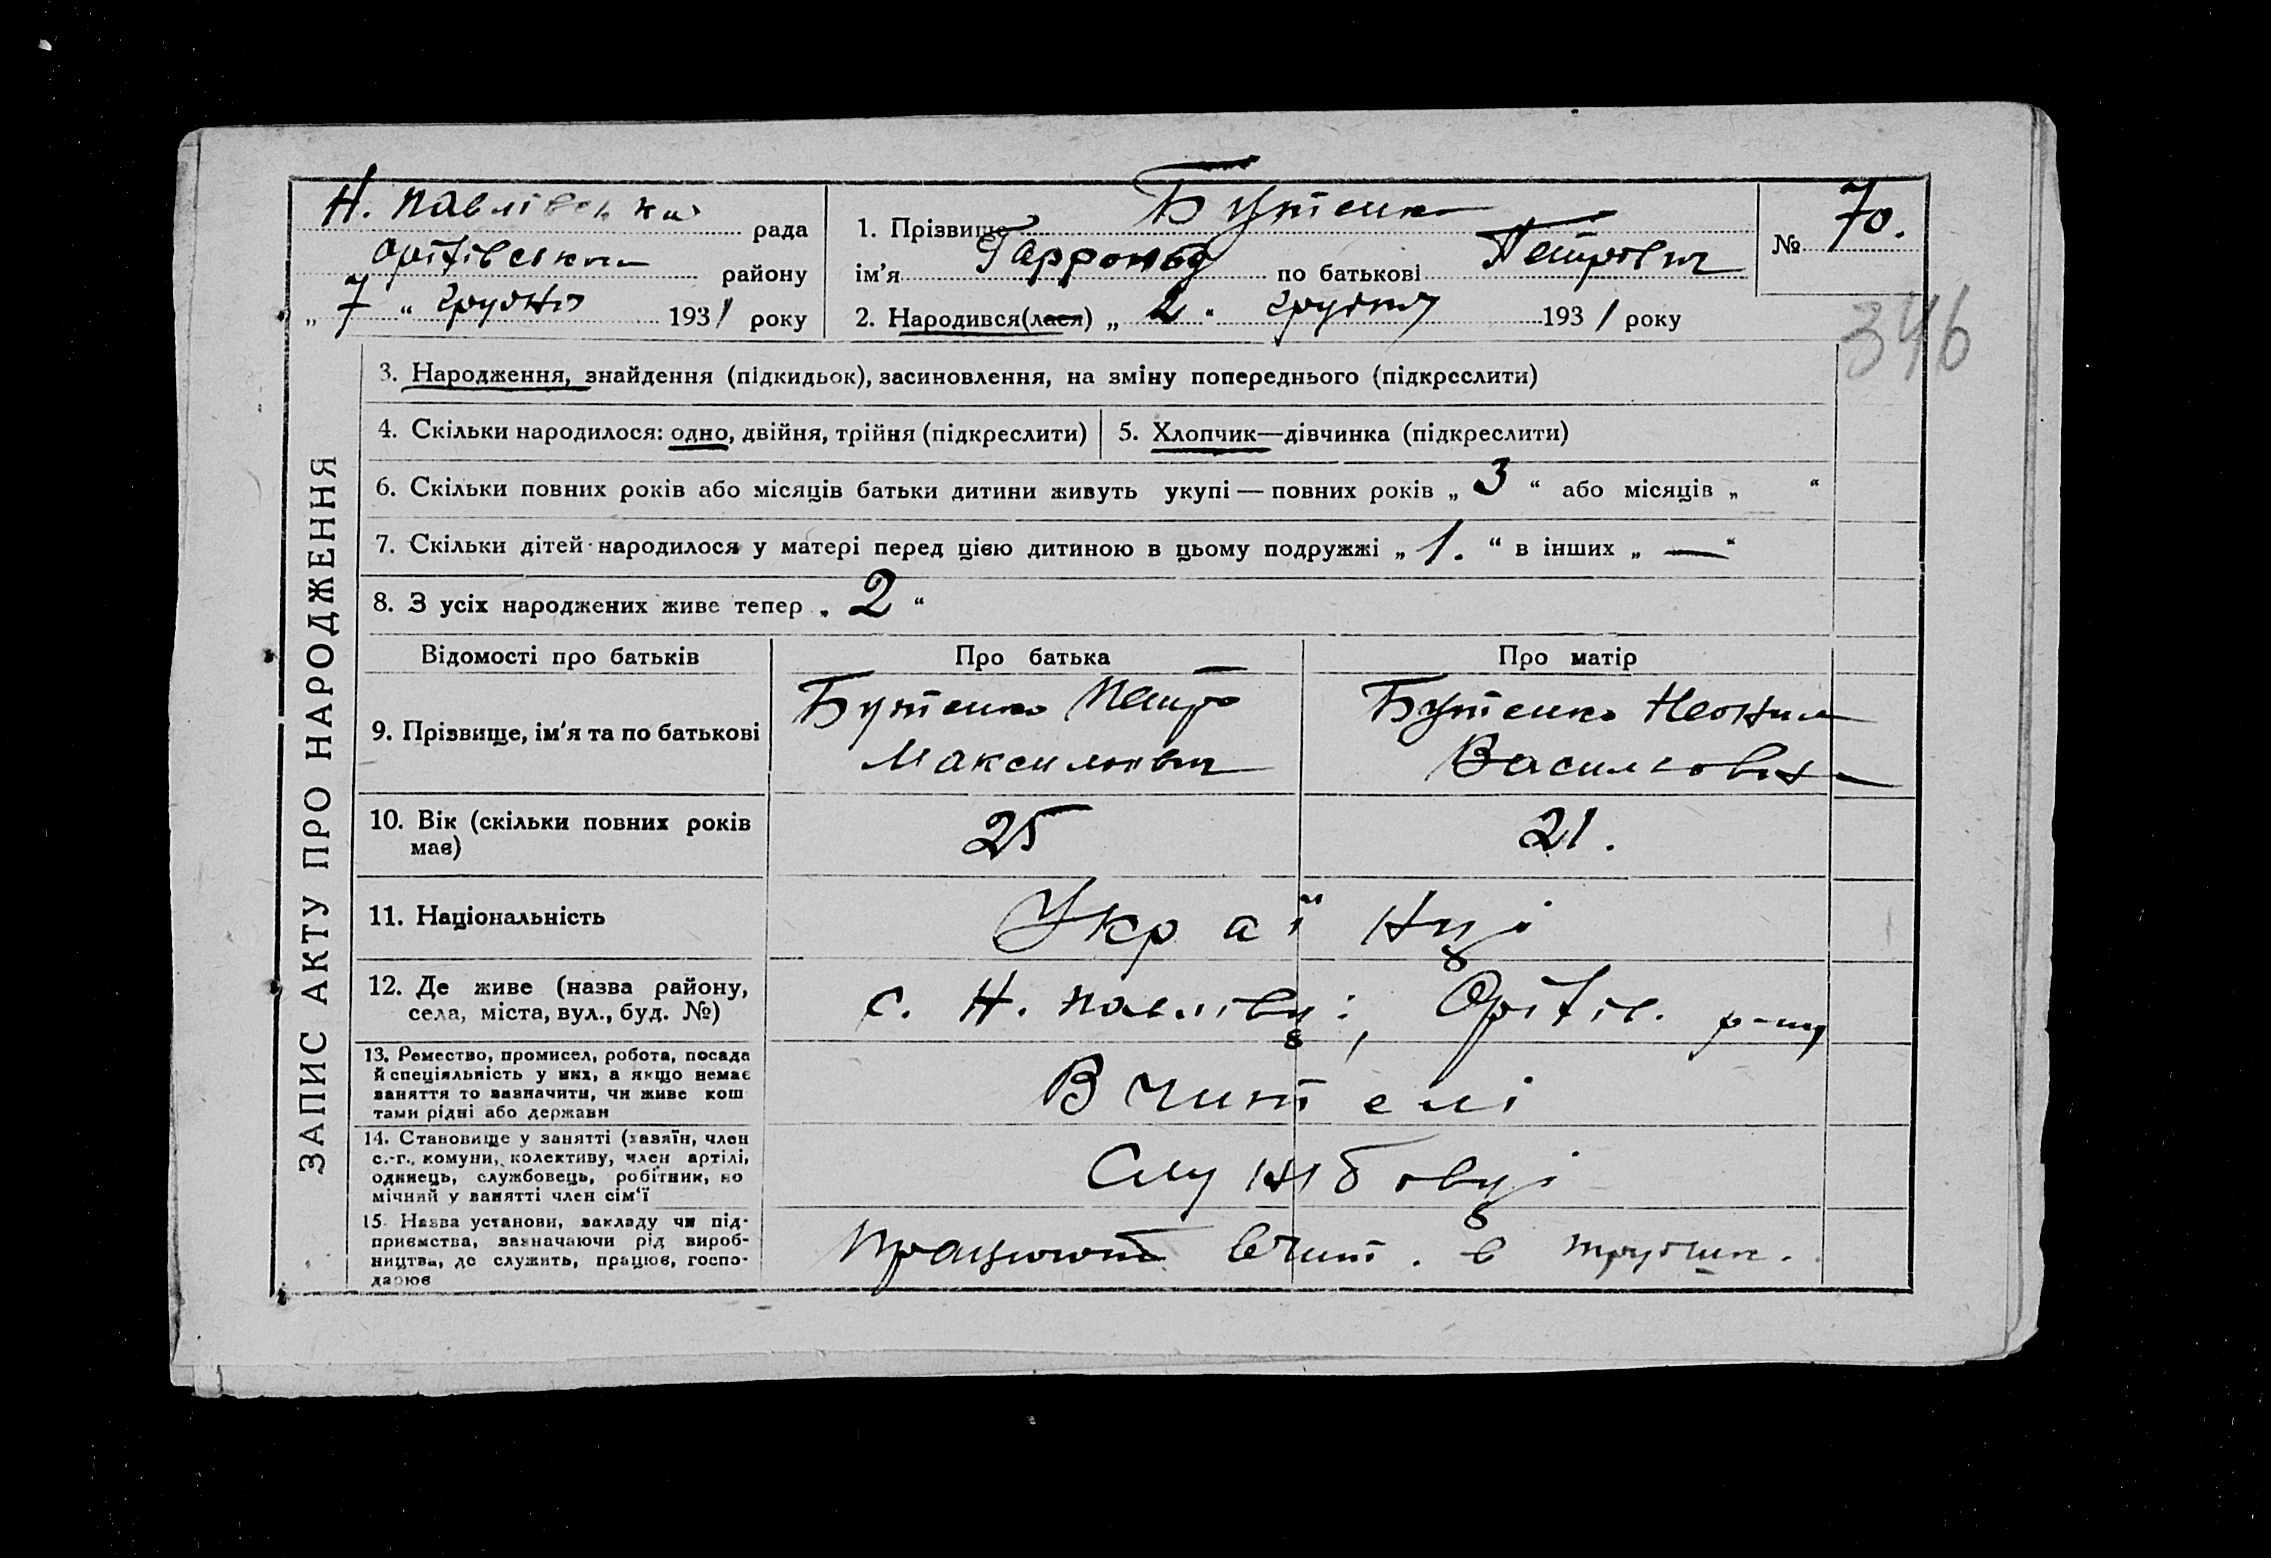 Н. Павлівська рада
Оріхівського району
„ 7 “ грудня 1931 року
1. Прізвище Бутенко
ім’я Гаррольд по батькові Петрович
2. Народився(лася) „ 2 “ грудня 1931 року
№ 70.
346
ЗАПИС АКТУ ПРО НАРОДЖЕННЯ
3. Народження, знайдення (підкидьок), засиновлення, на зміну попереднього (підкреслити)
4. Скільки народилося: одно, двійня, трійня (підкреслити)
5. Хлопчик—дівчинка (підкреслити)
6. Скільки повних років або місяців батьки дитини живуть укупі — повних років „ 3 “ або місяців „ “
7. Скільки дітей народилося у матері перед цією дитиною в цьому подружжі „ 1. “ в інших „ — “
8. З усіх народжених живе тепер „ 2 “
Відомості про батьків Про батька Про матір
9. Прізвище, ім’я та по батькові
Бутенко Петро
Максимович
Бутенко Неоніла
Васильовна
10. Вік (скільки повних років
має)
25 21.
11. Національність
Українці
12. Де живе (назва району,
села, міста, вул., буд. №)
с. Н. Павлівці, Оріхів. р-ну
13. Ремество, промисел, робота, посада
й спеціяльність у них, а якщо немає
заняття то зазначити, чи живе кош
тами рідні або держави
Вчителі
14. Становище у занятті (хазяїн, член
с.-г., комуни, колективу, член артілі,
одинець, службовець, робітник, по
мічний у занятті член сім’ї
Службовці
15. Назва установи, закладу чи під-
приємства, зазначаючи рід вироб-
ництва, де служить, працює, госпо-
дарює
Працюють вчит. в